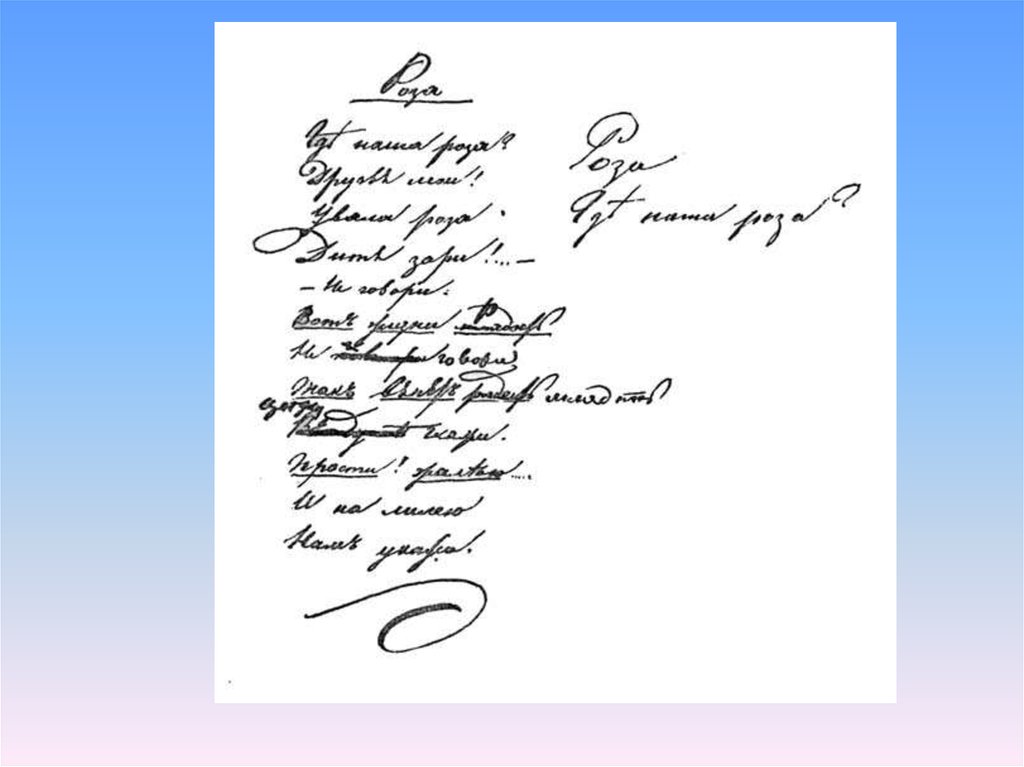 Роза
Гдѣ наша роза?
Друзья мои!
Увяла роза
Дитя зари!... —
— Не говори:
Вотъ жизни младость
Не говори,
Такъ вянетъ радость младость
цвѣтку скажи.
Прости! жалѣю....
И на лилею
Намъ укажи.
Роза
Гдѣ наша роза?